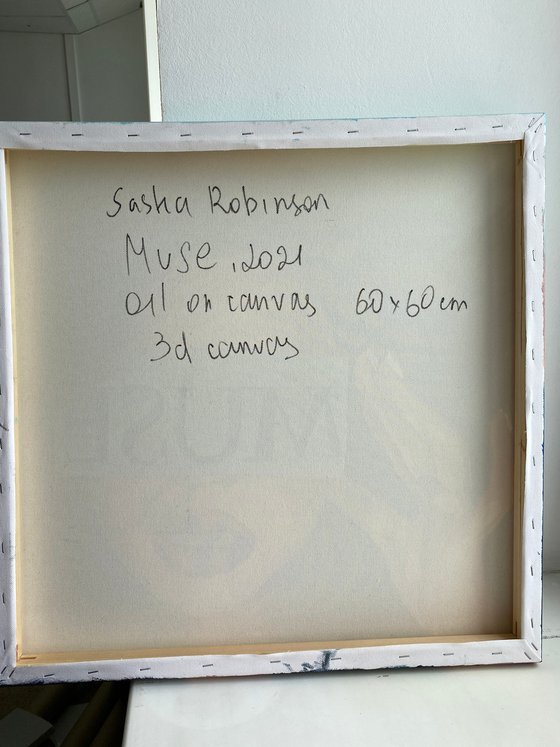 Sasha Robinson
Muse, 2021
oil on canvas 60x60 cm
3d canvas
MUS